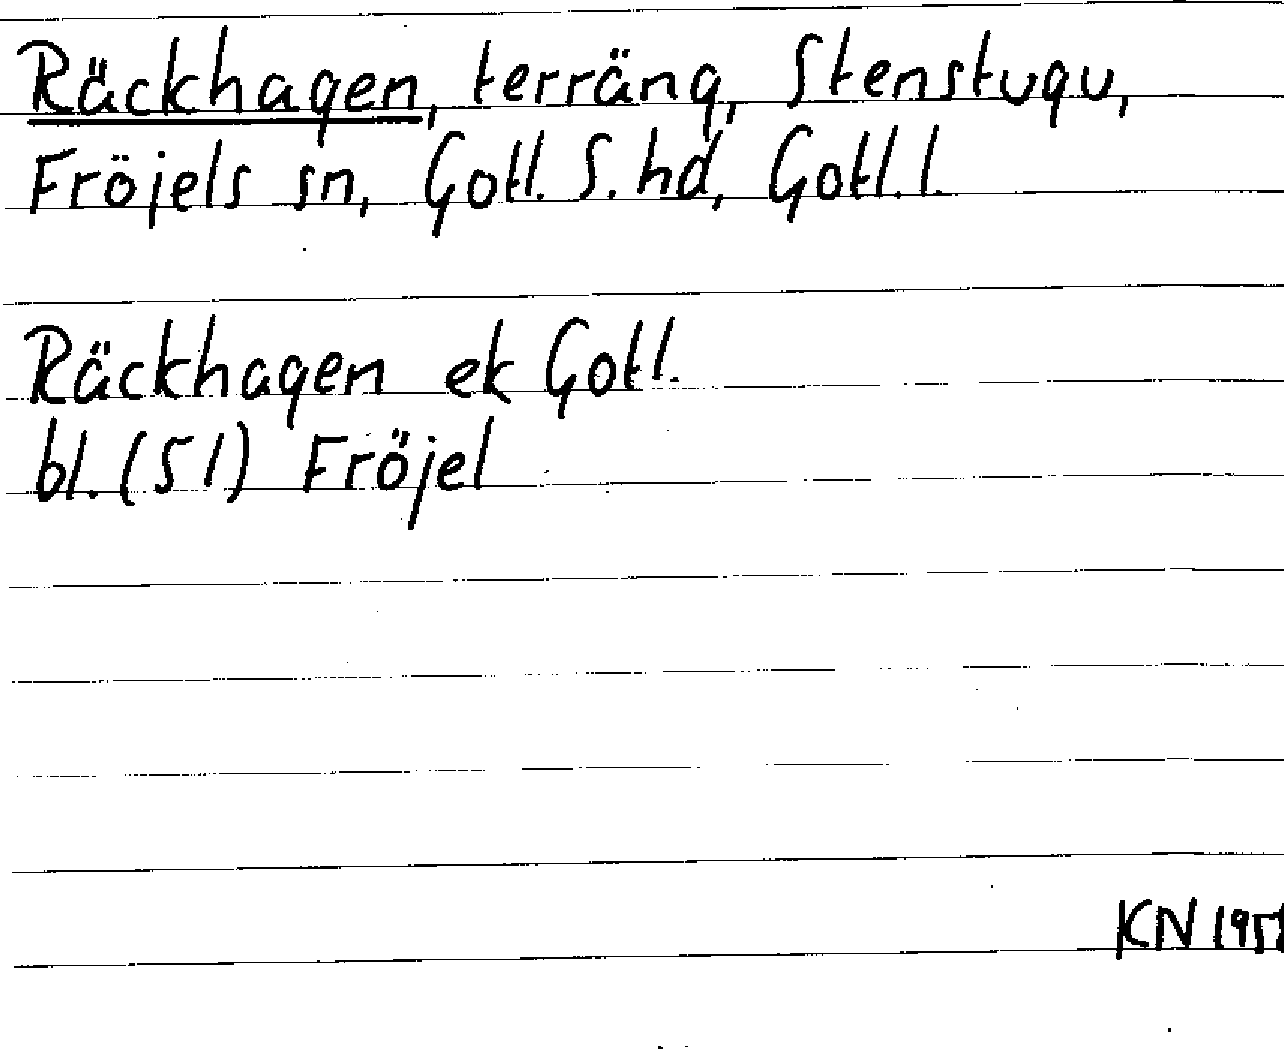 Räckhagen, terräng, Stenstugu,
Fröjels sn, Gotl. S. hd, Gotl. l.
Räckhagen ek Gotl.
bl. (51) Fröjel
KN 1951